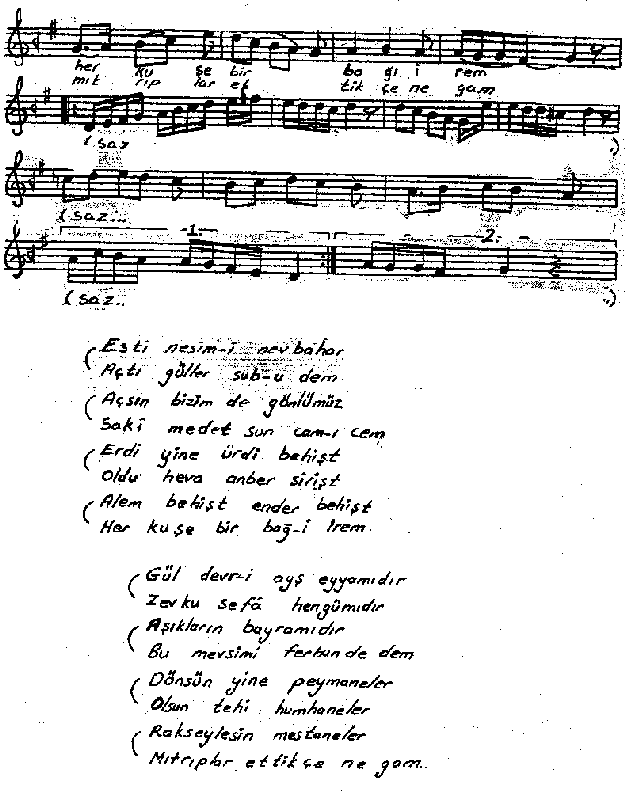 her ku şe bir ba ğı i rem
mıt rıp lar et tik çe ne gam
( saz )
( saz...
-1- -2-
( saz.. )
Esti nesim-i nevbahar
Açtı güller sub-u dem
Açsın bizim de gönlümüz
Saki medet sun cam-ı cem
Erdi yine ürdi behişt
Oldu heva anber sirişt
Alem behişt ender behişt
Her kuşe bir bağ-i İrem.
Gül devr-i ayş eyyamıdır
Zevku sefâ hengûmıdır
Aşıkların bayramıdır
Bu mevsimi ferhunde dem
Dönsün yine peymaneler
Olsun tehi humhaneler
Rakseylesin mestaneler
Mıtrıplar ettikçe ne gam..